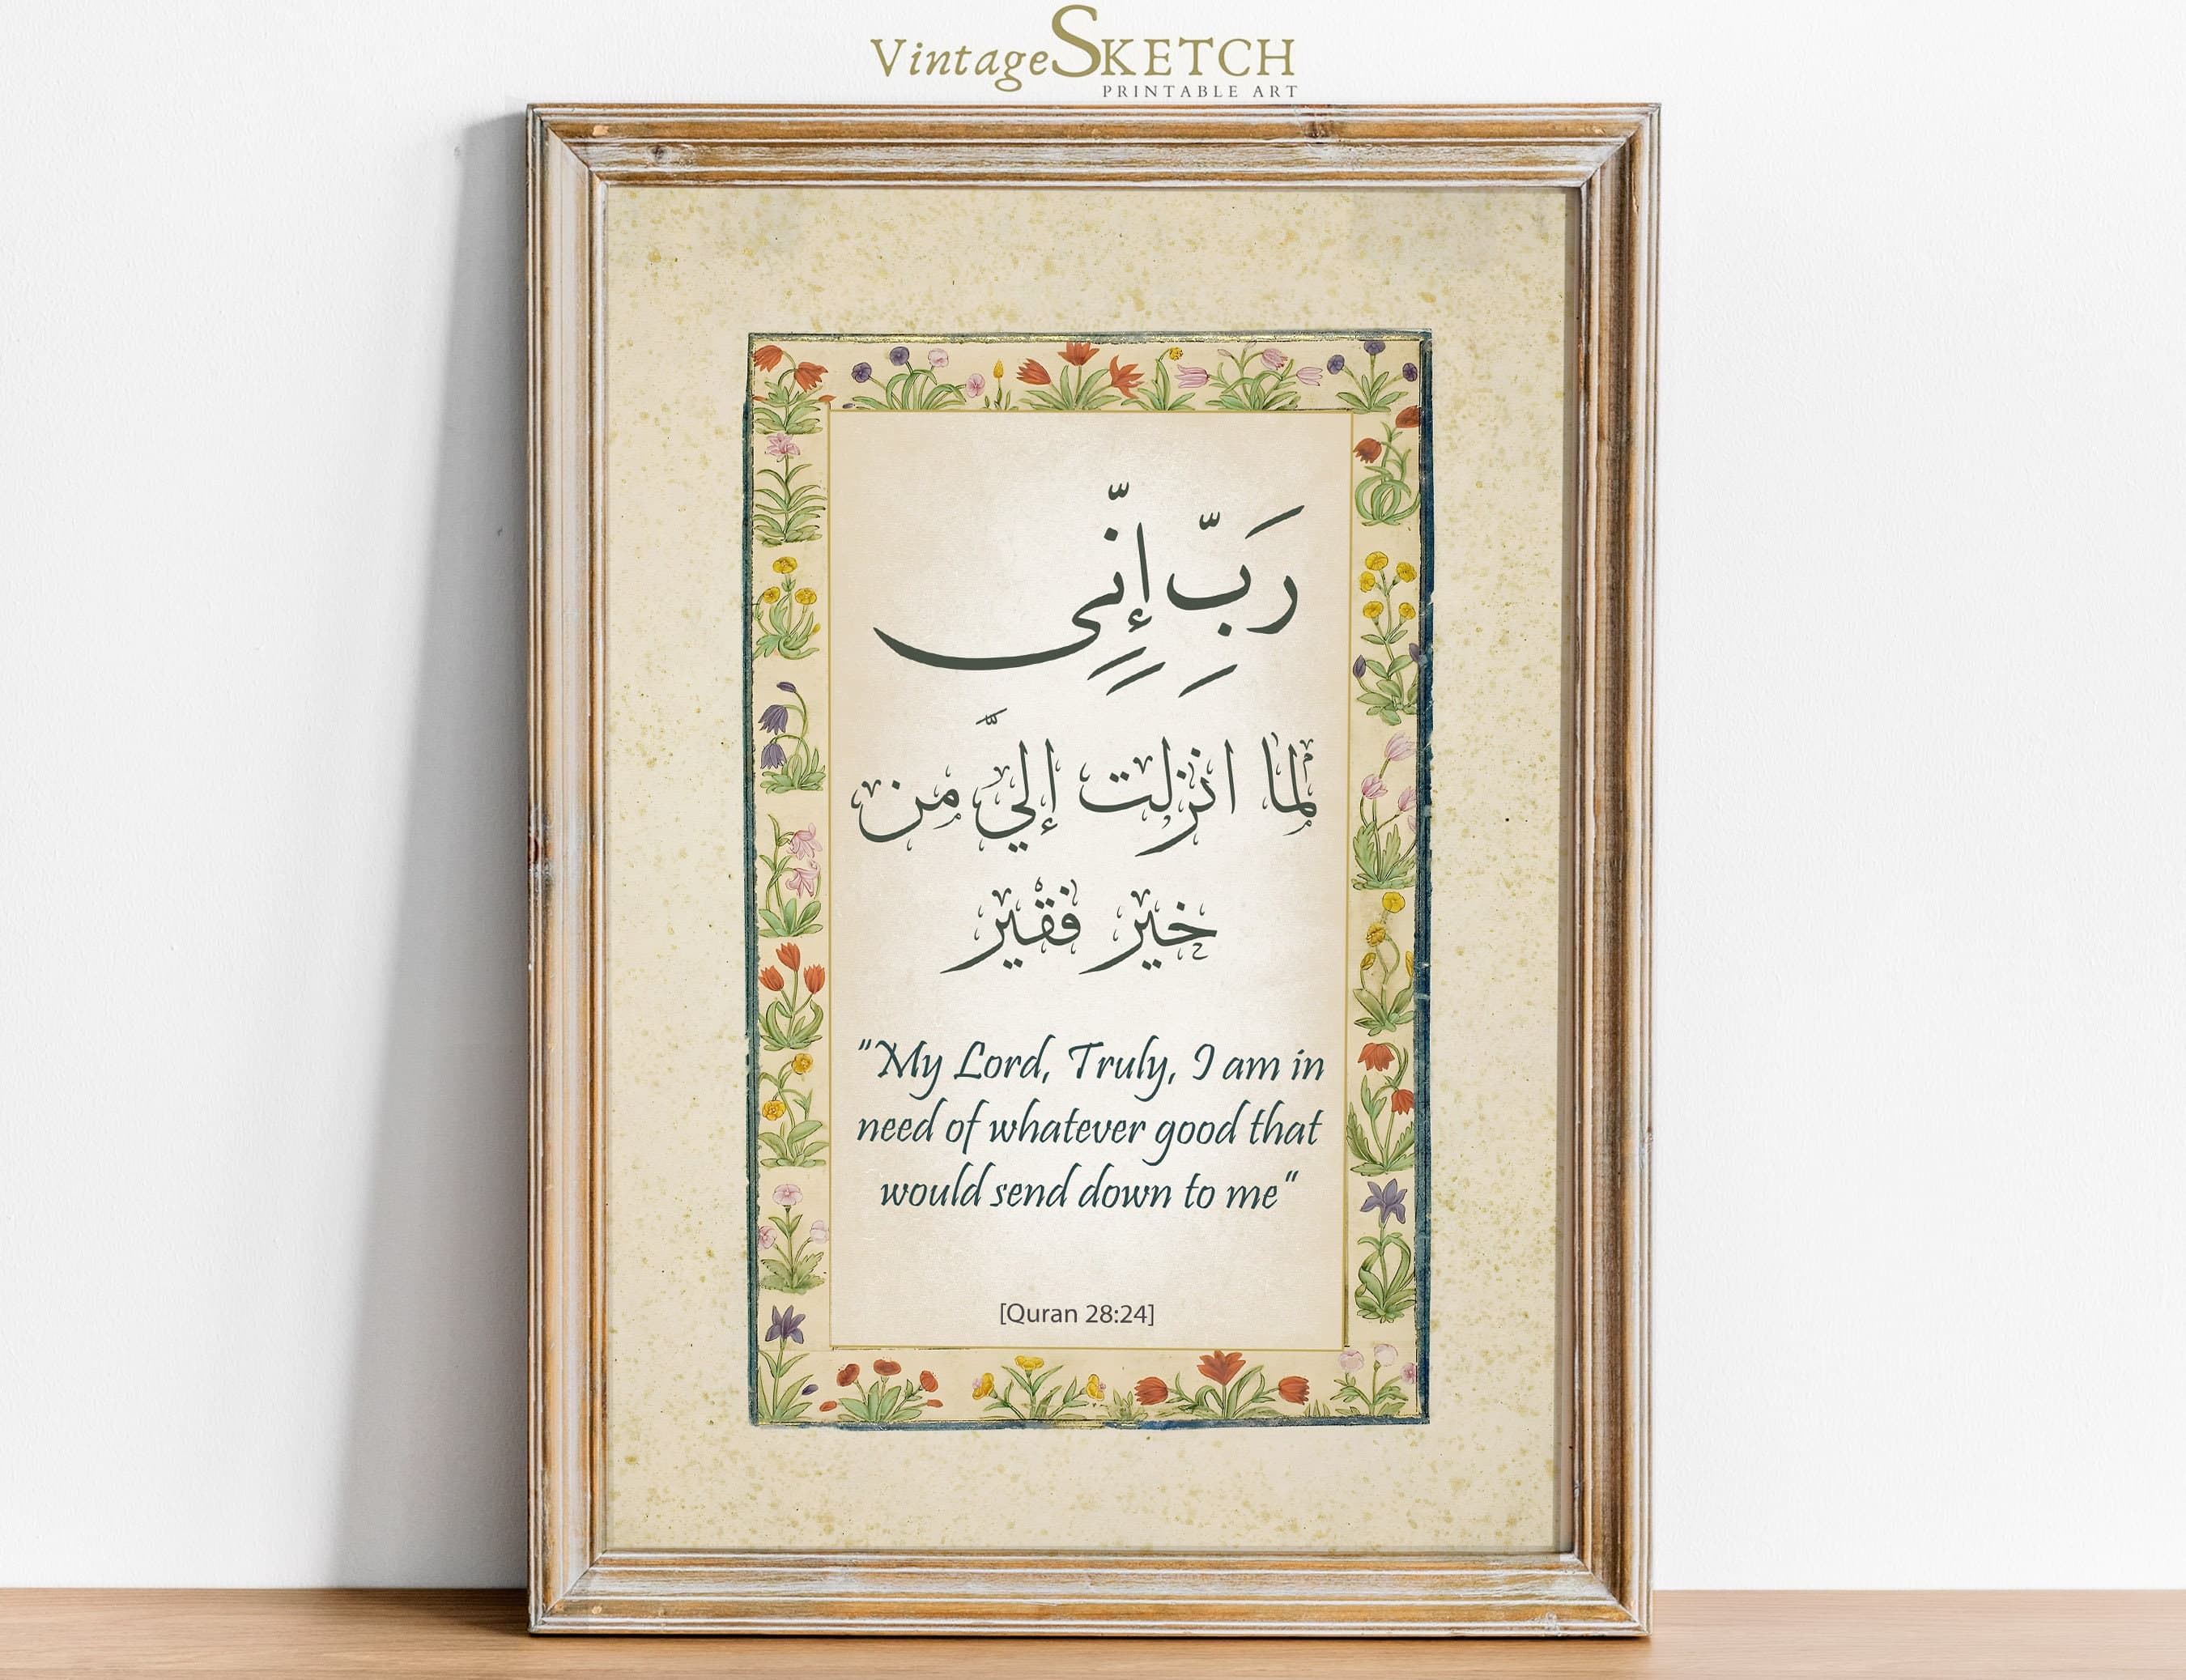 VintageSKETCH
PRINTABLE ART
رَبِّ إِنِّى
لما انزلت إليَّ من
خير فقير
"My Lord, Truly, I am in
need of whatever good that
would send down to me"
[Quran 28:24]